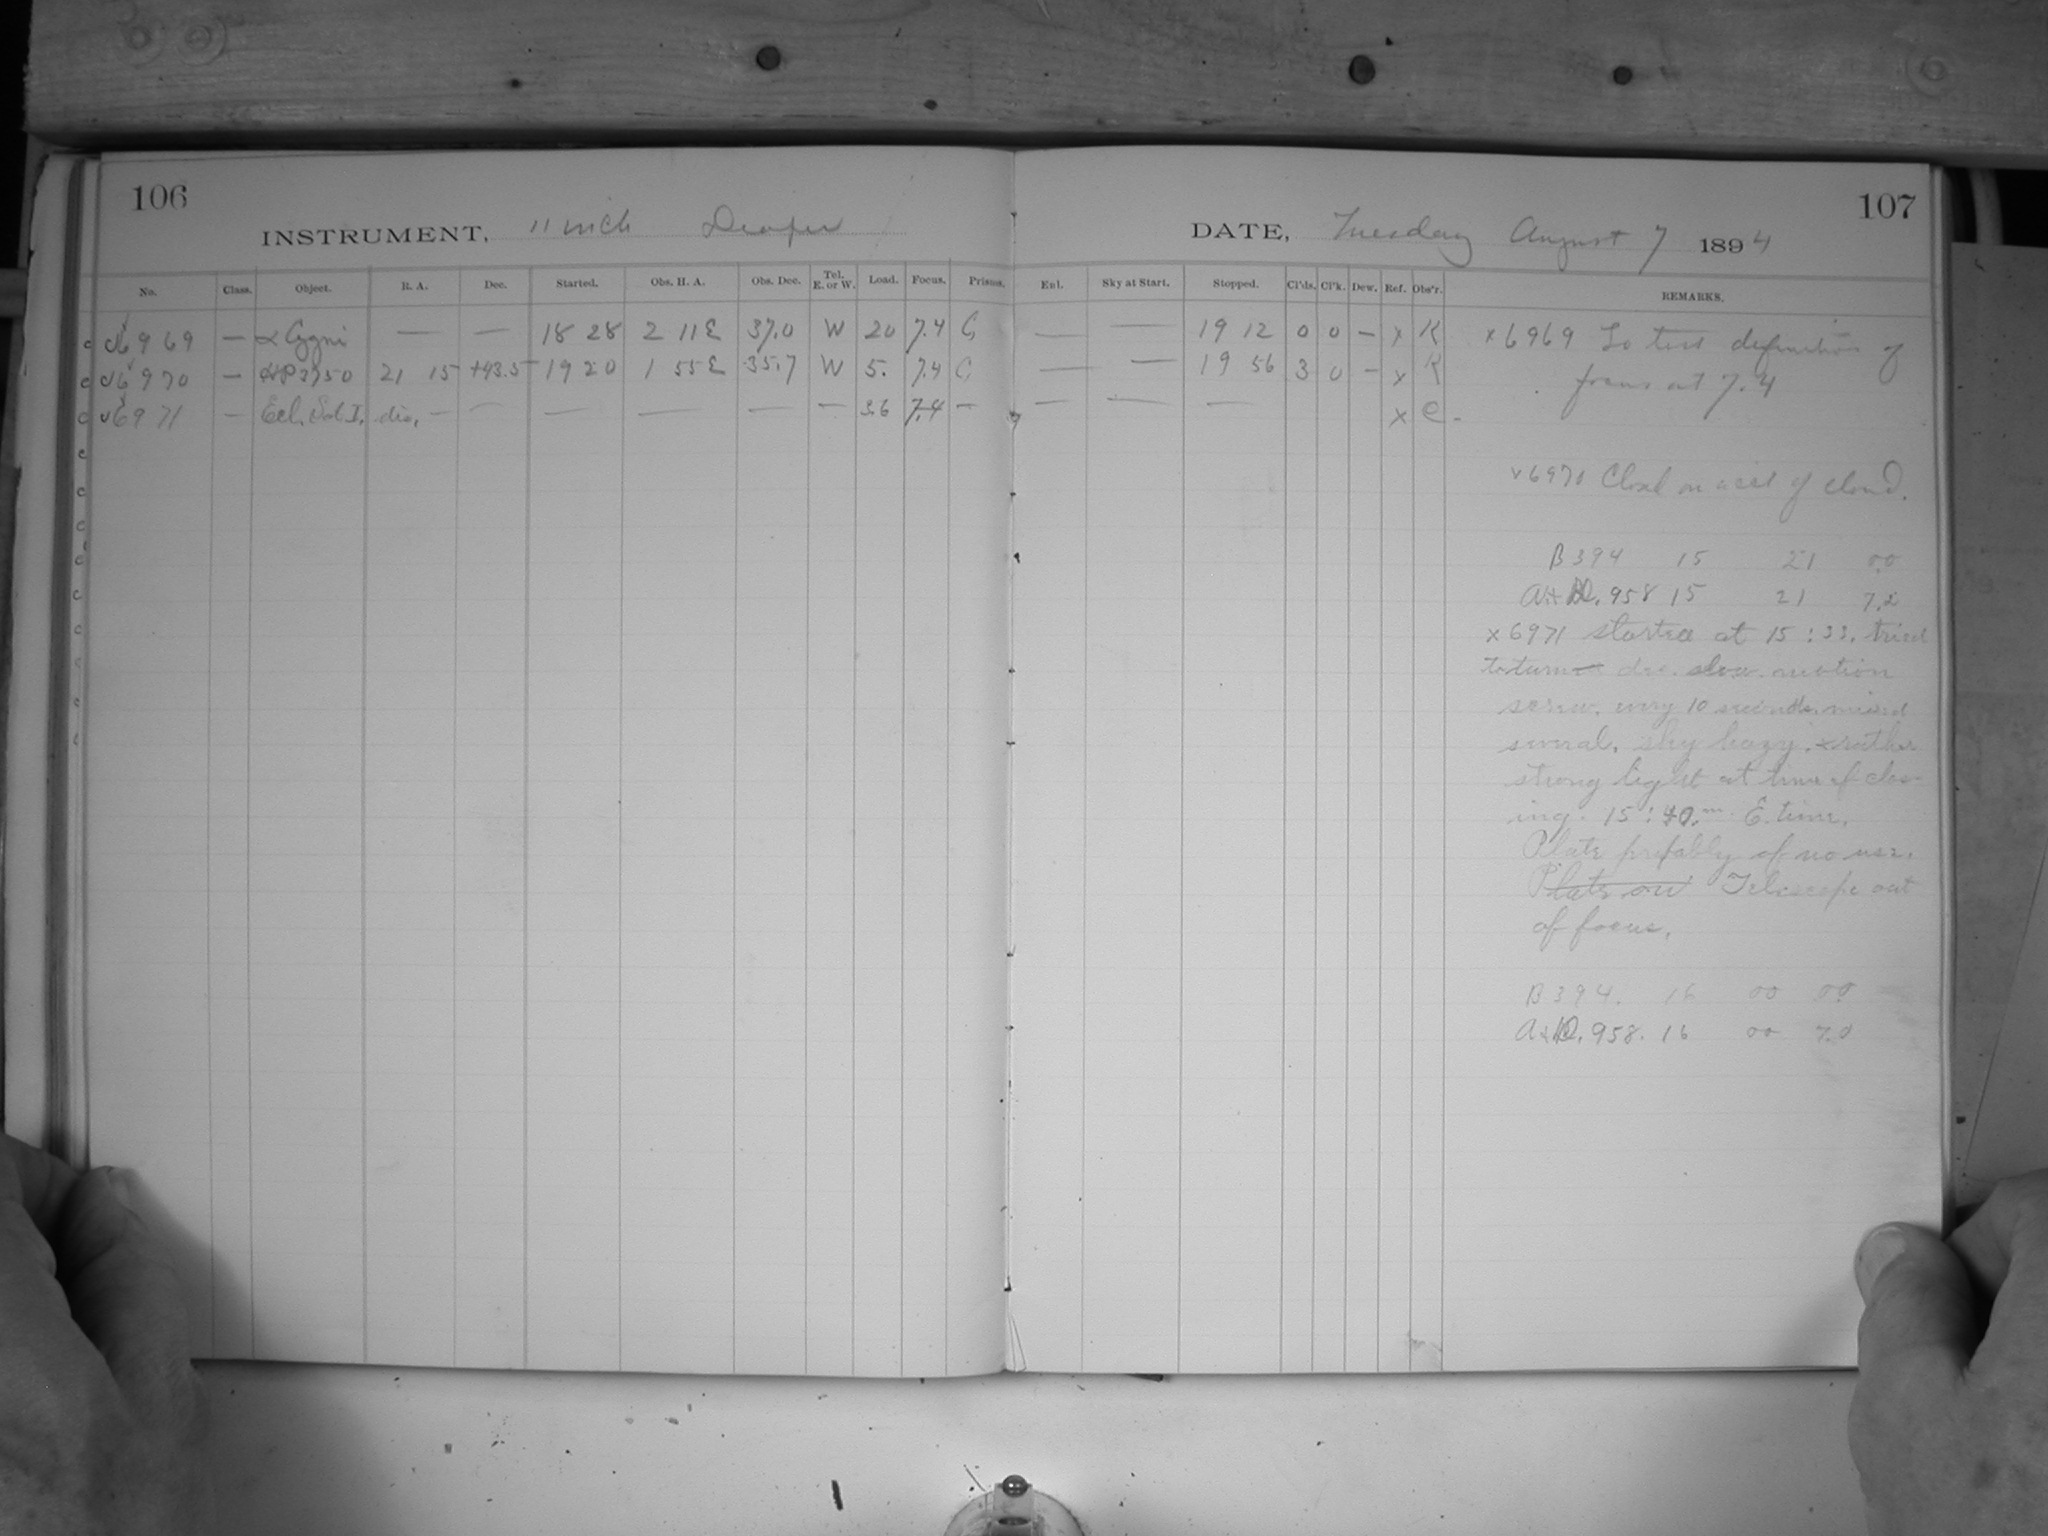 106
INSTRUMENT, 11 inch Draper
No. Class. Object. R. A. Dec. Started. Obs. H. A. Obs. Dec. Tel. E. or W. Load. Focus. Prisms.
6969 — α Cygni — — 18 28 2 11 E 37.0 W 20 7.4 C
6970 — 3750 21 15 +43.5 19 20 1 55 E 35.7 W 5. 7.4 C
6971 — Ecl. Sat. I. dis. — — — — — — 3.6 7.4 —
107
DATE, Tuesday August 7 1894
Eol. Sky at Start. Stopped. Cl'ds. Cl'k. Dew. Ref. Obs'r. REMARKS.
— — 19 12 0 0 — x K x 6969 To test definition of
focus at 7.4
— — 19 56 3 0 — x K
— — — x C.
x 6970 Closed on acct of cloud.
B 394 15 21 0.0
958 15 21 7.2
x 6971 started at 15 : 33. tried
to turn dec. slow motion
screw. every 10 seconds. missed
several. sky hazy. + rather
strong light at time of clos-
ing. 15 : 40.m E. time.
Plate probably of no use.
Plate Telescope out
of focus.
B 394. 16 00 0.0
958. 16 00 7.0